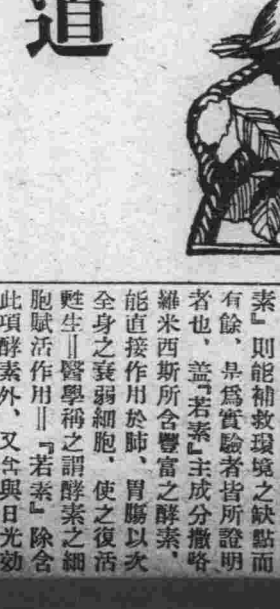 道
素』則能補救環境之缺點而
有餘、是爲實驗者皆所證明
者也、蓋『若素』主成分撒咯
羅米西斯所含豐富之酵素、
能直接作用於肺、胃腸以次
全身之衰弱細胞、使之復活
甦生‖醫學稱之謂酵素之細
胞賦活作用‖『若素』除含
此項酵素外、又含與日光効